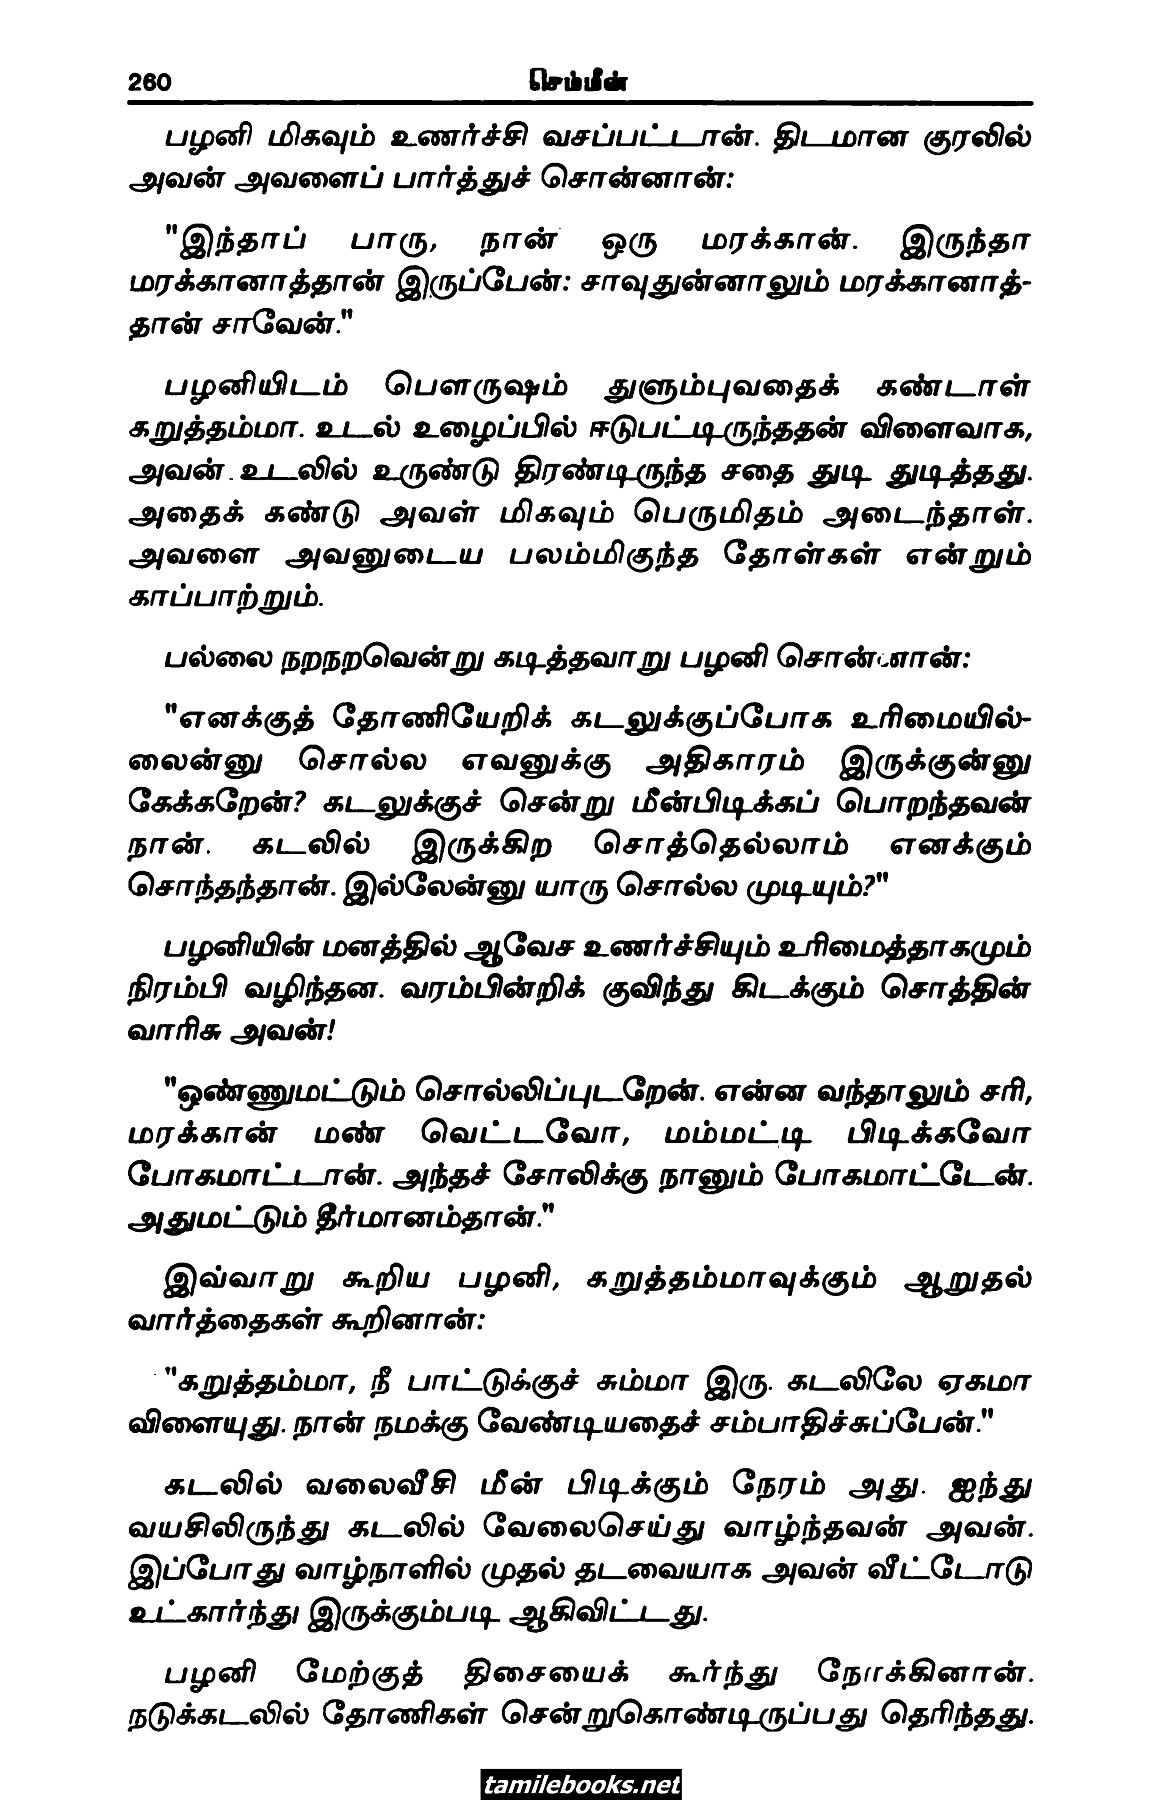 260 செம்மீன்
பழனி மிகவும் உணர்ச்சி வசப்பட்டான். திடமான குரலில்
அவன் அவளைப் பார்த்துச் சொன்னான்:
"இந்தாப் பாரு, நான் ஒரு மரக்கான். இருந்தா
மரக்கானாத்தான் இருப்பேன்: சாவுதுன்னாலும் மரக்கானாத்-
தான் சாவேன்."
பழனியிடம் பௌருஷம் துளும்புவதைக் கண்டாள்
கறுத்தம்மா. உடல் உழைப்பில் ஈடுபட்டிருந்ததன் விளைவாக,
அவன் உடலில் உருண்டு திரண்டிருந்த சதை துடி துடித்தது.
அதைக் கண்டு அவள் மிகவும் பெருமிதம் அடைந்தாள்.
அவளை அவனுடைய பலம்மிகுந்த தோள்கள் என்றும்
காப்பாற்றும்.
பல்லை நறநறவென்று கடித்தவாறு பழனி சொன்னான்:
"எனக்குத் தோணியேறிக் கடலுக்குப்போக உரிமையில்-
லைன்னு சொல்ல எவனுக்கு அதிகாரம் இருக்குன்னு
கேக்கறேன்? கடலுக்குச் சென்று மீன்பிடிக்கப் பொறந்தவன்
நான். கடலில் இருக்கிற சொத்தெல்லாம் எனக்கும்
சொந்தந்தான். இல்லேன்னு யாரு சொல்ல முடியும்?"
பழனியின் மனத்தில் ஆவேச உணர்ச்சியும் உரிமைத்தாகமும்
நிரம்பி வழிந்தன. வரம்பின்றிக் குவிந்து கிடக்கும் சொத்தின்
வாரிசு அவன்!
"ஒண்ணுமட்டும் சொல்லிப்புடறேன். என்ன வந்தாலும் சரி,
மரக்கான் மண் வெட்டவோ, மம்மட்டி பிடிக்கவோ
போகமாட்டான். அந்தச் சோலிக்கு நானும் போகமாட்டேன்.
அதுமட்டும் தீர்மானம்தான்."
இவ்வாறு கூறிய பழனி, கறுத்தம்மாவுக்கும் ஆறுதல்
வார்த்தைகள் கூறினான்:
"கறுத்தம்மா, நீ பாட்டுக்குச் சும்மா இரு. கடலிலே ஏகமா
விளையுது. நான் நமக்கு வேண்டியதைச் சம்பாதிச்சுப்பேன்."
கடலில் வலைவீசி மீன் பிடிக்கும் நேரம் அது. ஐந்து
வயசிலிருந்து கடலில் வேலைசெய்து வாழ்ந்தவன் அவன்.
இப்போது வாழ்நாளில் முதல் தடவையாக அவன் வீட்டோடு
உட்கார்ந்து இருக்கும்படி ஆகிவிட்டது.
பழனி மேற்குத் திசையைக் கூர்ந்து நோக்கினான்.
நடுக்கடலில் தோணிகள் சென்றுகொண்டிருப்பது தெரிந்தது.
tamilebooks.net